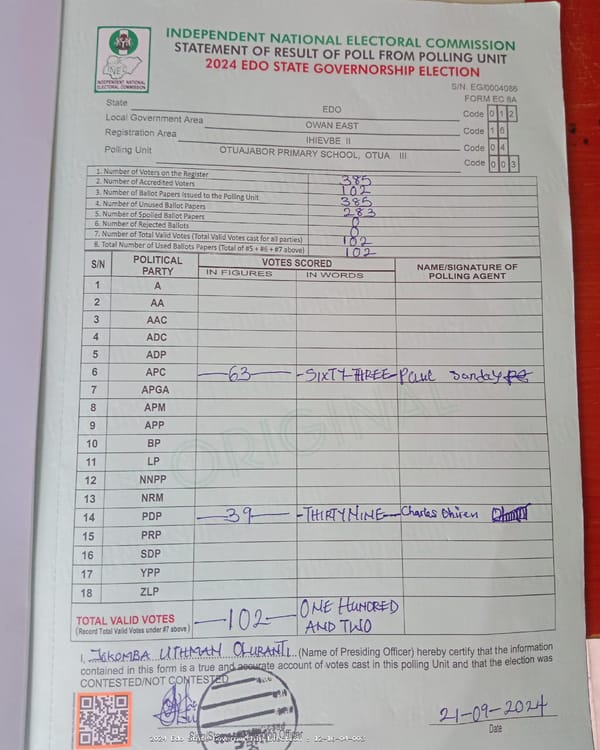 INDEPENDENT NATIONAL ELECTORAL COMMISSION
STATEMENT OF RESULT OF POLL FROM POLLING UNIT
2024 EDO STATE GOVERNORSHIP ELECTION
INEC
INDEPENDENT NATIONAL
ELECTORAL COMMISSION
S/N. EG/0004086
FORM EC 8A
State EDO Code 0 1 2
Local Government Area OWAN EAST Code 1 6
Registration Area IHIEVBE II Code 0 4
Polling Unit OTUAJABOR PRIMARY SCHOOL, OTUA III Code 0 0 3
1. Number of Voters on the Register 385
2. Number of Accredited Voters 102
3. Number of Ballot Papers Issued to the Polling Unit 385
4. Number of Unused Ballot Papers 283
5. Number of Spoiled Ballot Papers 0
6. Number of Rejected Ballots 0
7. Number of Total Valid Votes (Total Valid Votes cast for all parties) 102
8. Total Number of Used Ballots Papers (Total of #5 + #6 + #7 above) 102
S/N POLITICAL PARTY VOTES SCORED NAME/SIGNATURE OF POLLING AGENT
IN FIGURES IN WORDS
1 A
2 AA
3 AAC
4 ADC
5 ADP
6 APC 63 SIXTY THREE Paul Sunday
7 APGA
8 APM
9 APP
10 BP
11 LP
12 NNPP
13 NRM
14 PDP 39 THIRTY NINE Charles
15 PRP
16 SDP
17 YPP
18 ZLP
ORIGINAL
TOTAL VALID VOTES 102 ONE HUNDRED AND TWO
(Record Total Valid Votes under #7 above)
I, UTHMAN OLURANTI (Name of Presiding Officer) hereby certify that the information
contained in this form is a true and accurate account of votes cast in this polling Unit and that the election was
CONTESTED/NOT CONTESTED
21-09-2024
Date